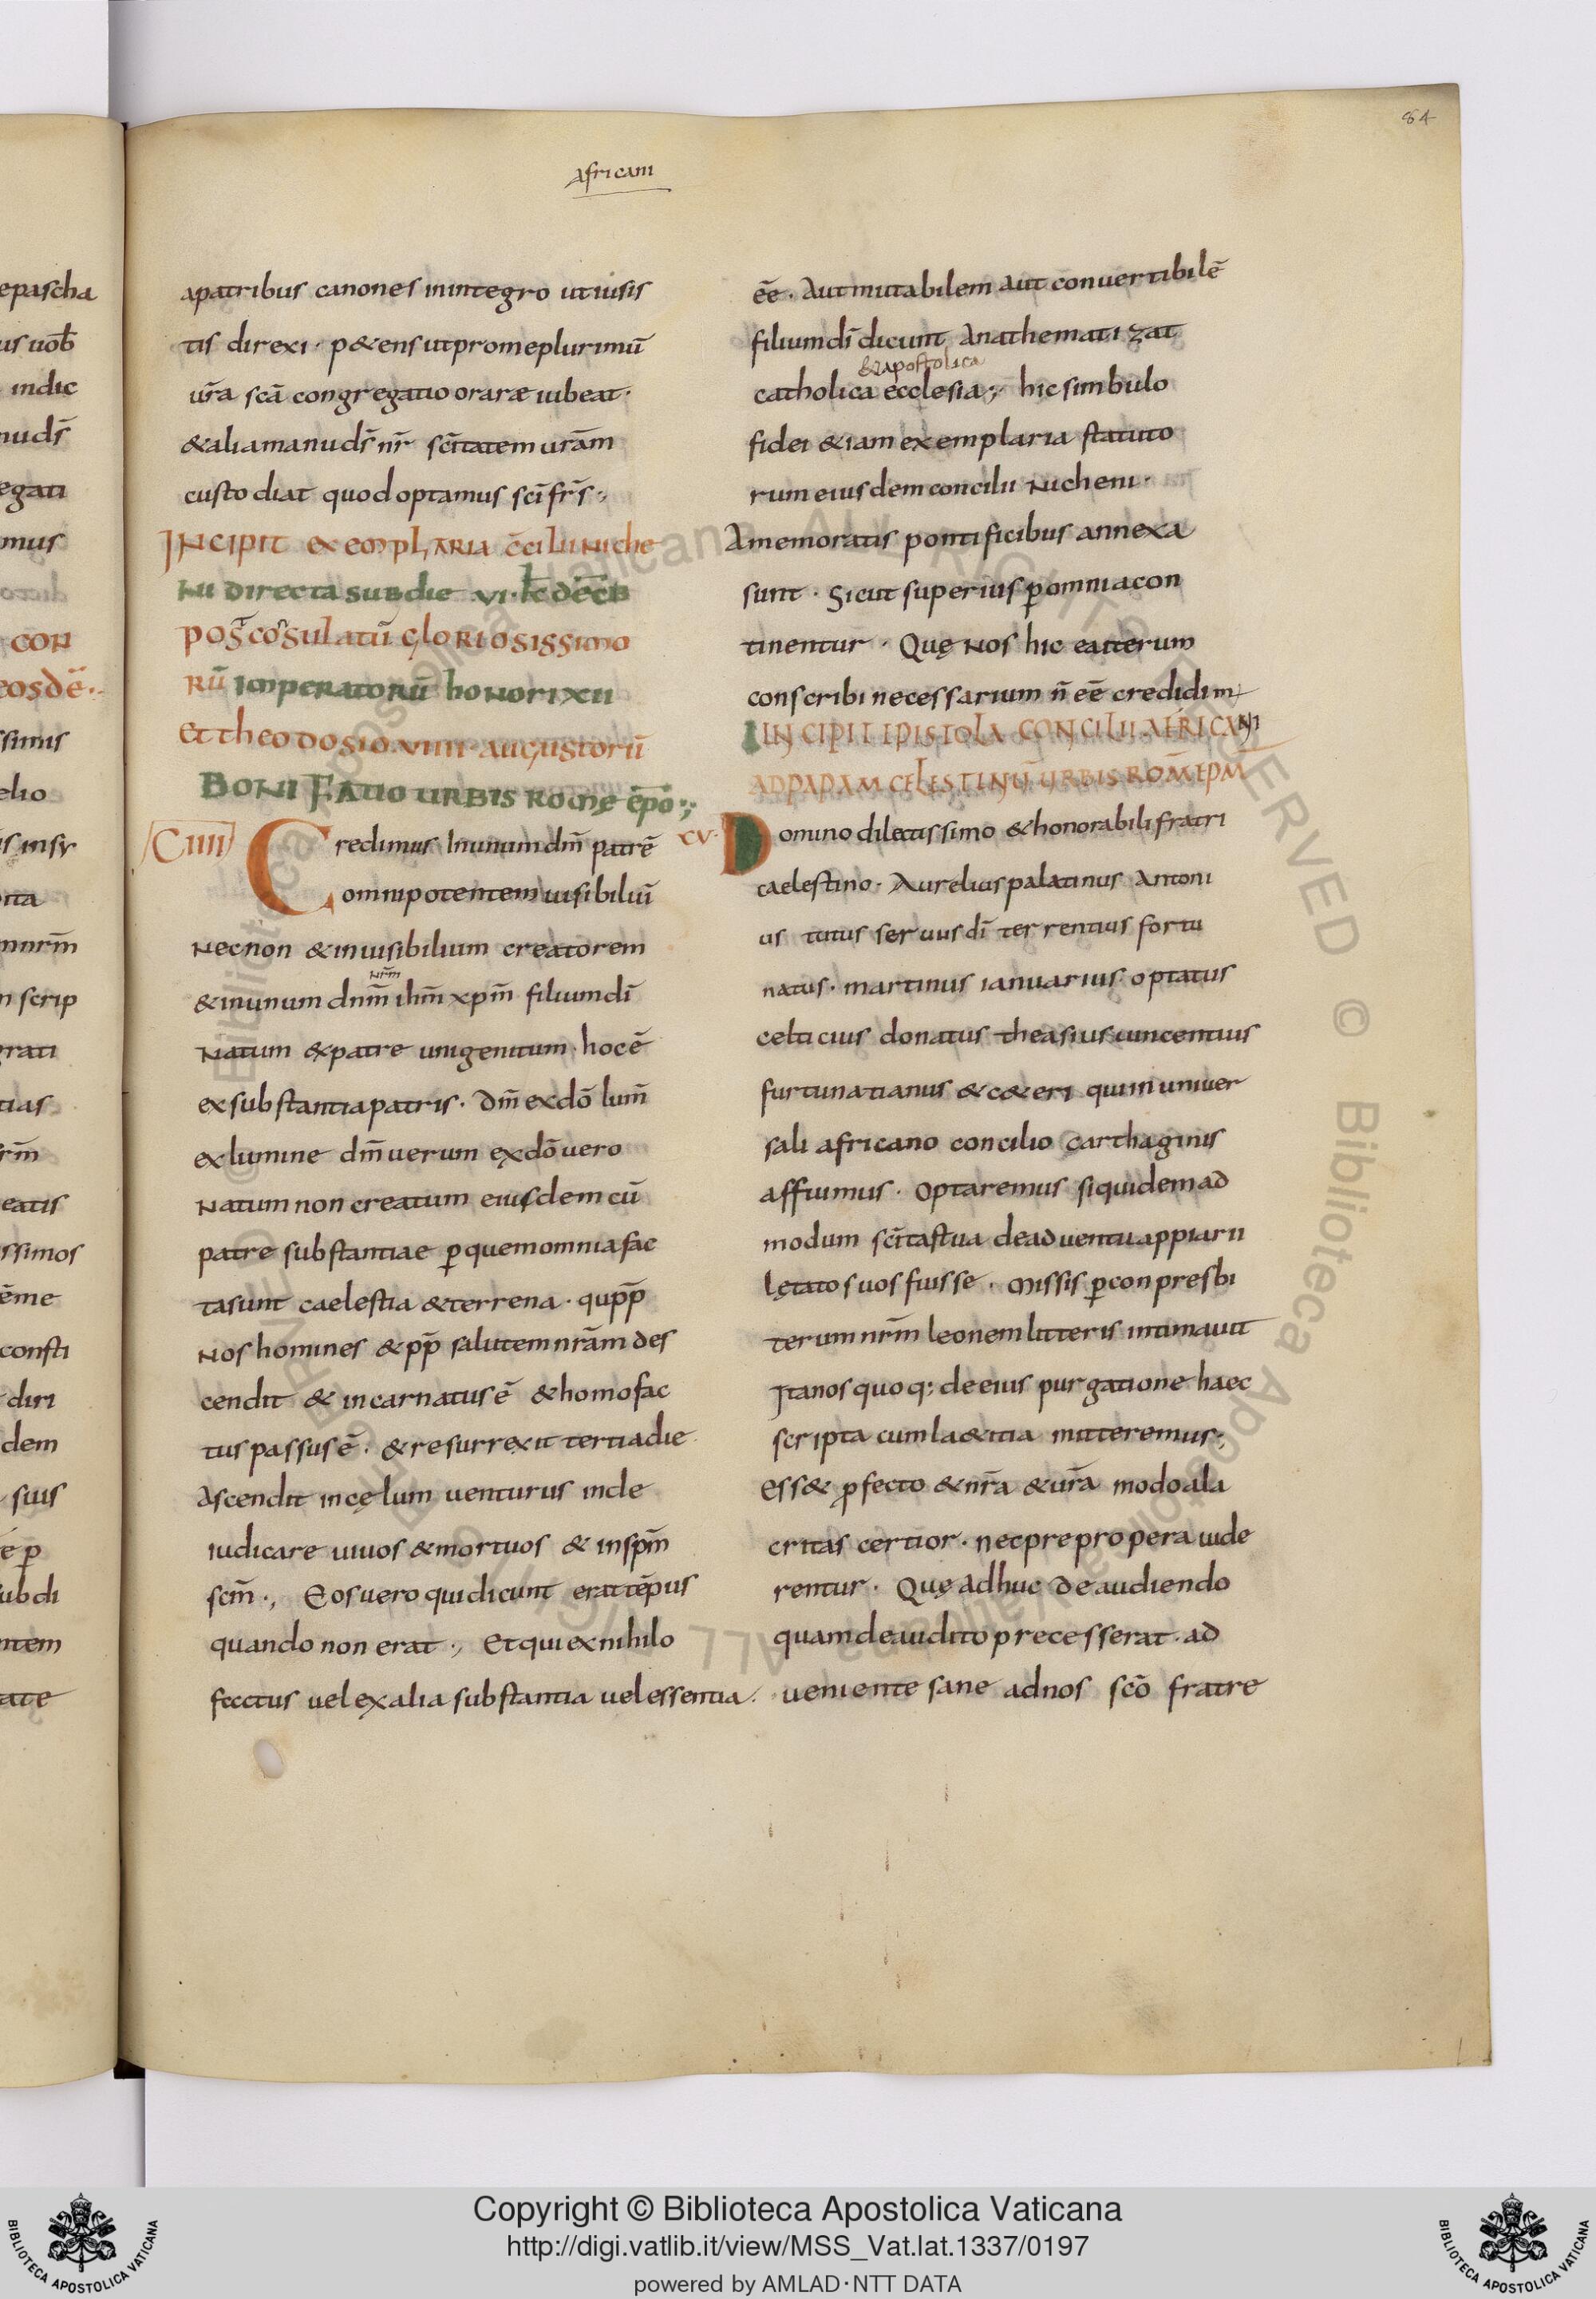 84
africani
apatribus canones inintegro utiusis
tis direxi · p&ens utpromeplurimū
ur̄a scā congregatio orarae iubeat ·
&aliamanu ds̄ nr̄ sc̄itatem urām
custodiat quodoptamus sci fr̄s ·,
INCIPIT EXEMPLARIA c̄ciLii NIche
Nii DIRECTA SUB die VI · kł dēcb
POST cosulatū GLORIOSISSIMO
Rū imperatorū hoNORI XII
et theodosio VIIII · Augustorū
BONIFATIO URBIS ROMĘ ēpō :,
CIIII Credimus Inunum dm̄ patrē
omnipotentem uisibiliū
Necnon &inuisibilium creatorem
nrm̄
&inunum dnm̄ ihm̄ xpm̄ filium dī
Natum &patre unigenitum · hoc ē
ex substantia patris · dm̄ exdō lum̄
ex lumine dm̄ uerum exdō uero
Natum non creatum eiusdem cū
patre substantiae p̱ quem omnia fac
ta sunt caelestia &terrena · qui pp̄
Nos homines &pp̄ salutem nrām des
cendit & incarnatus ē &homo fac
tus passus ē · &resurrexit tertia die
Ascendit incęlum uenturus inde
iudicare uiuos &mortuos & in spm̄
scm̄ ·, Eos uero qui dicunt erat tēpus
quando non erat ·, Et qui ex nihilo
fecctus uel ex alia substantia uel essentia ·
ēē · Aut mutabilem aut conuertibilē
filium dī dicunt Anathematizat
&apostolica
catholica ecclesia ;· hic simbulo
fidei &iam exemplaria statuto
rum eiusdem concilii Nicheni ·
A memoratis pontificibus annexa
sunt · Sicut superius p̱ omnia con
tinentur · Quę Nos hic eaiterum
conscribi necessarium n̄ ēē credidim
INCIPIT EPISTOLA CONCILII AFRICANI
AD PAPAM CELESTINŪ URBIS ROM̄ EPM
XCV · Domino dilectissimo &honorabili fratri
caelestino · Aurelius palatinus Antoni
us tutus seruus dī terrentius fortu
natus · martinus ianuarius · optatus
celticius donatus theasius uincentius
furtunatianus &c&eri qui in uniuer
sali africano concilio carthaginis
affuimus · Optaremus siquidem ad
modum sc̄itas tua de aduentu appiarii
lętatos uos fuisse · Missis p̱ conpresbi
terum nrm̄ leonem litteris intimauit
Ita nos quoq; de eius purgatione haec
scripta cum la&itia mitteremus ;
Ess& p̱fecto &nr̄a &ur̄a modo ala
critas certior · nec prepropera uide
rentur · Quę adhuc de audiendo
quam de audito precesserat · ad
ueniente sane ad nos scō fratre
epascha
us uob̄
indic
nu ds̄
egati
mus
CON
eosdē ·
ssimis
elio
is insr
nrm̄
scrip
grati
tias
rm̄
eatis
ssimos
ēme
consti
diri
dem
suis
ē p̱
subdi
ntem
ate
© Biblioteca Apostolica Vaticana ALL RIGHTS RESERVED
Copyright © Biblioteca Apostolica Vaticana
http://digi.vatlib.it/view/MSS_Vat.lat.1337/0197
powered by AMLAD·NTT DATA
BIBLIOTECA APOSTOLICA VATICANA
BIBLIOTECA APOSTOLICA VATICANA